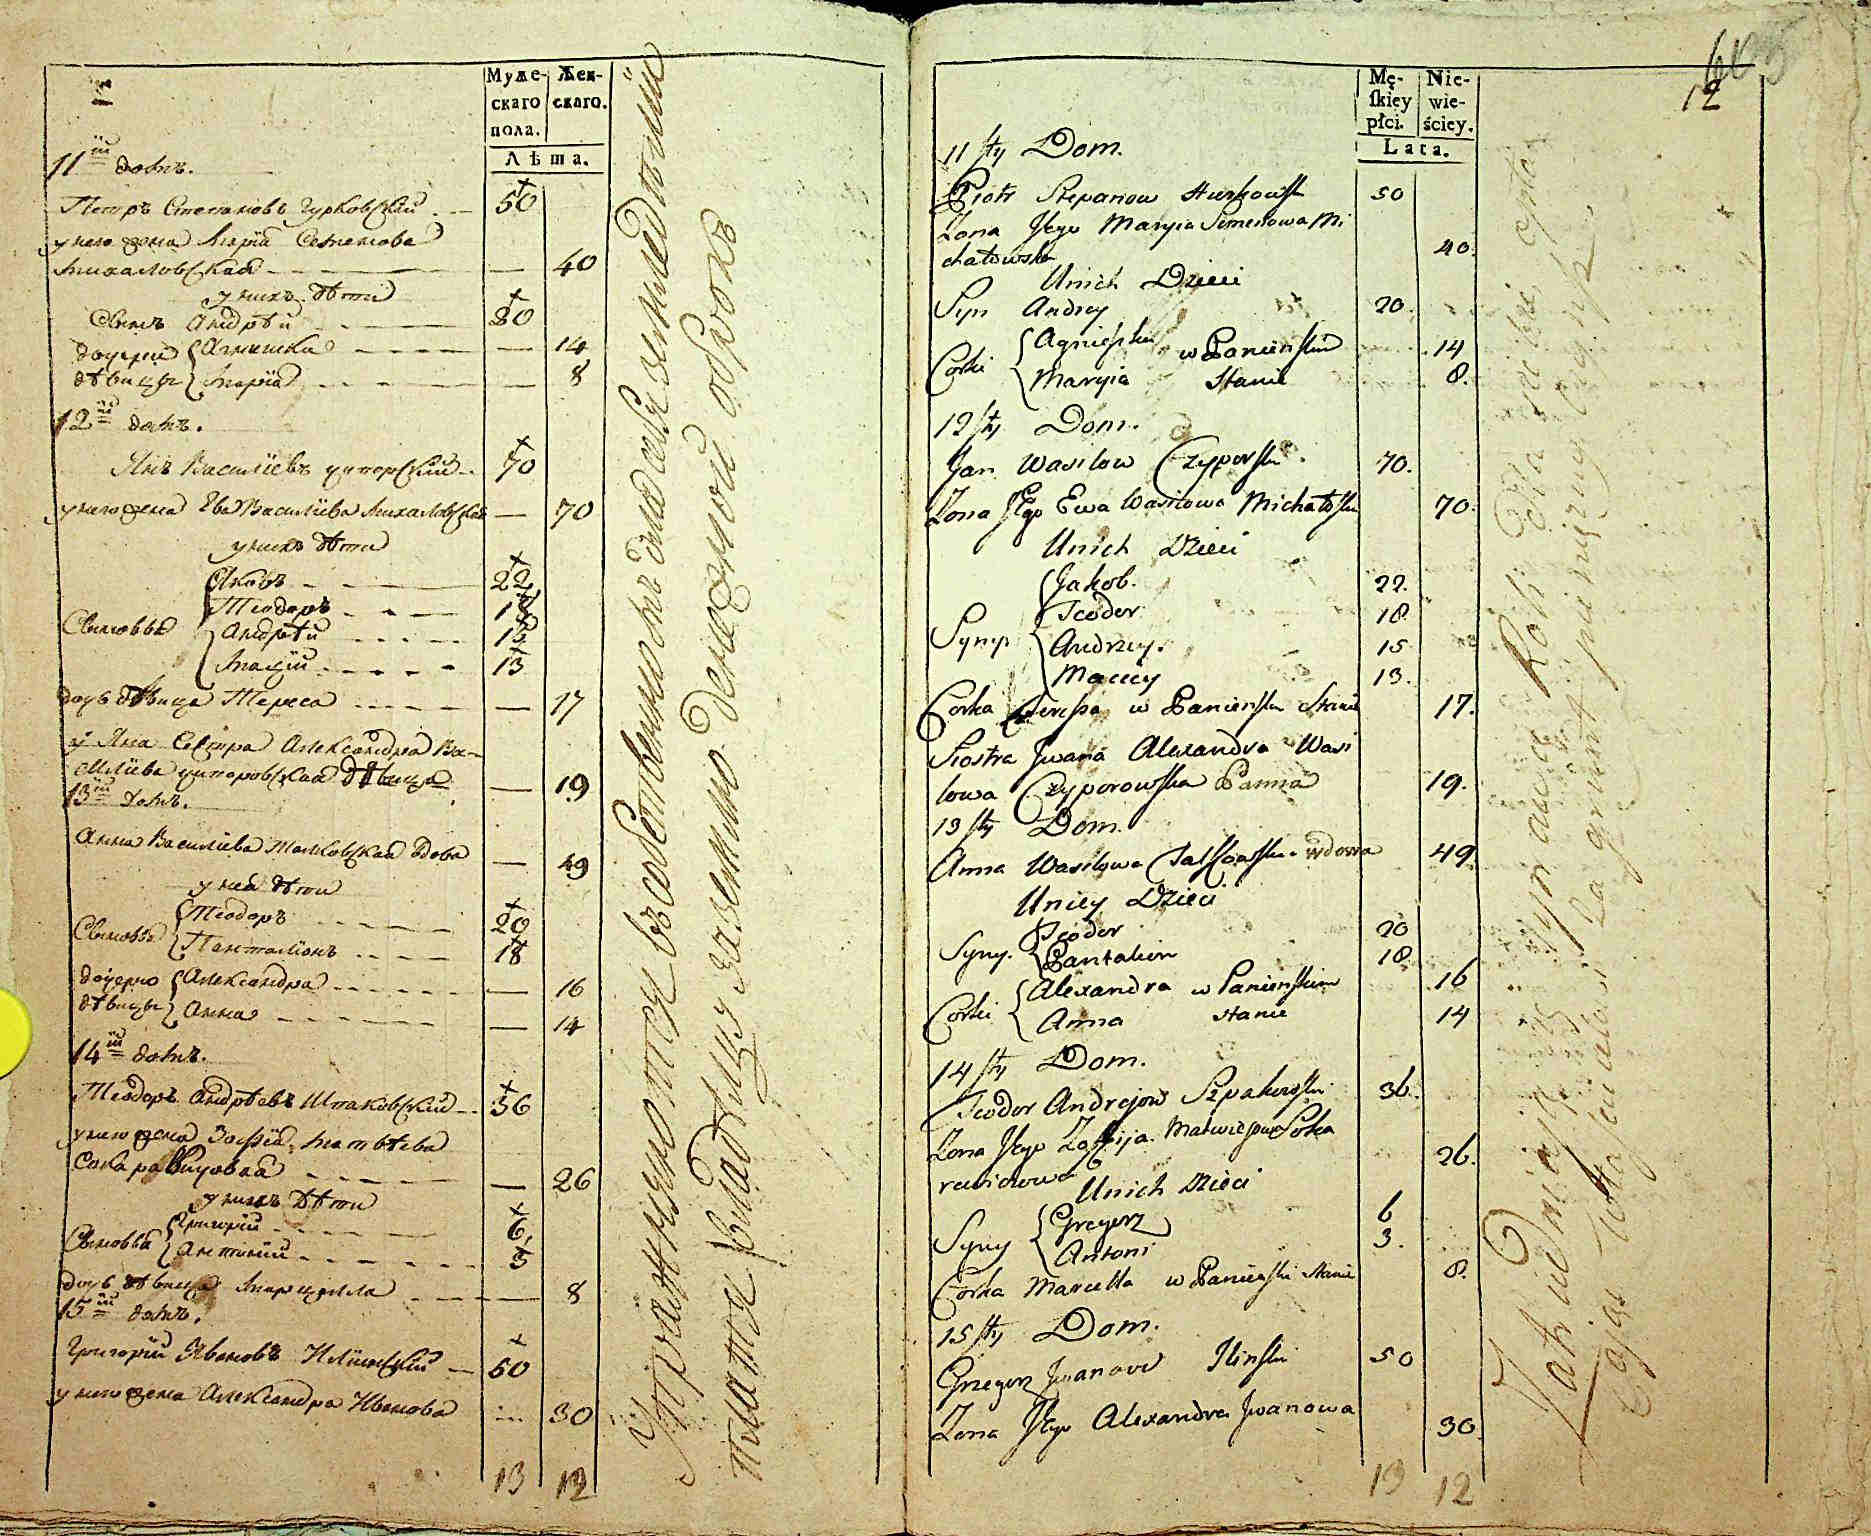 Муже-
скаго
пола.
Жен-
скаго.
Лѣта.
11й домъ.
Петръ Степановъ Гурковскій 50
у него жена Марія Семенова
Михаловская 40
у нихъ дѣти
Сынъ Андрѣй 20
дочери Агнешка 14
дѣвицы Марія 8
12й домъ.
Янъ Василіевъ Ципорскій 70
у него жена Ева Василіева Михаловская 70
у нихъ дѣти
Яковъ 22
Теодоръ 18
Сыновья Андрѣй 15
Мацѣй 13
дочь дѣвица Тереса 17
у Яна Сестра Александра Ва-
силіева Ципоровская дѣвица 19
13й домъ.
Анна Василіева Талковская вдова 49
у ней дѣти
Теодоръ 20
Сыновья Панталіонъ 18
дочери Александра 16
дѣвицы Анна 14
14й домъ.
Теодоръ Андрѣевъ Шпаковскій 36
у него жена Зофія Матвѣева
Сокаравичовна 26
у нихъ дѣти
Григорій 6
Сыновья Антоній 3
дочь дѣвица Марцелла 8
15й домъ.
Григорій Ивановъ Илинскій 50
у него жена Александра Иванова 30
13 12
Упражняются въ собственномъ для себя земледѣліи
платя владѣльцу за землю денежной оброкъ
Mę-
skiey
płci.
Nie-
wie-
ściey.
Lata.
12
11sty Dom.
Piotr Stepanow Hurkowski 50
Zona Jego Maryia Semenowa Mi
chałowska 40
Unich Dzieci
Syn Andrzey 20
Corki Agnieszka w Panienskim 14
Maryia Stanie 8
12sty Dom.
Jan Wasilow Czyporski 70
Zona Jego Ewa Wasilowa Michałoska 70
Unich Dzieci
Jakob. 22
Teodor 18
Syny Andrzey. 15
Maciey 13
Corka Teressa w Panienskim Stanie 17.
Siostra Jwana Alexandra Wasi
lowa Czyporowska Panna 19.
13sty Dom.
Anna Wasilowa wdowa 49
Uniey Dzieci
Teodor 20
Syny. Pantalion 18
Corki Alexandra w Panienskim 16
Anna Stanie 14
14sty Dom.
Teodor Andrejow Szpakowski 36.
Zona Jego Zofija Matwiejowa Soka
rewiczowa 26.
Unich Dzieci
Syny Gregorz 6
Antoni 3.
Corka Marcella w Panienski Stanie 8.
15sty Dom.
Grzegorz Jwanow Ilinski 50
Zona Jego Alexandra Jwanowa 30
13 12
Zatrudniaią się Roli dla siebie
za grunt pieniężny Czynsz